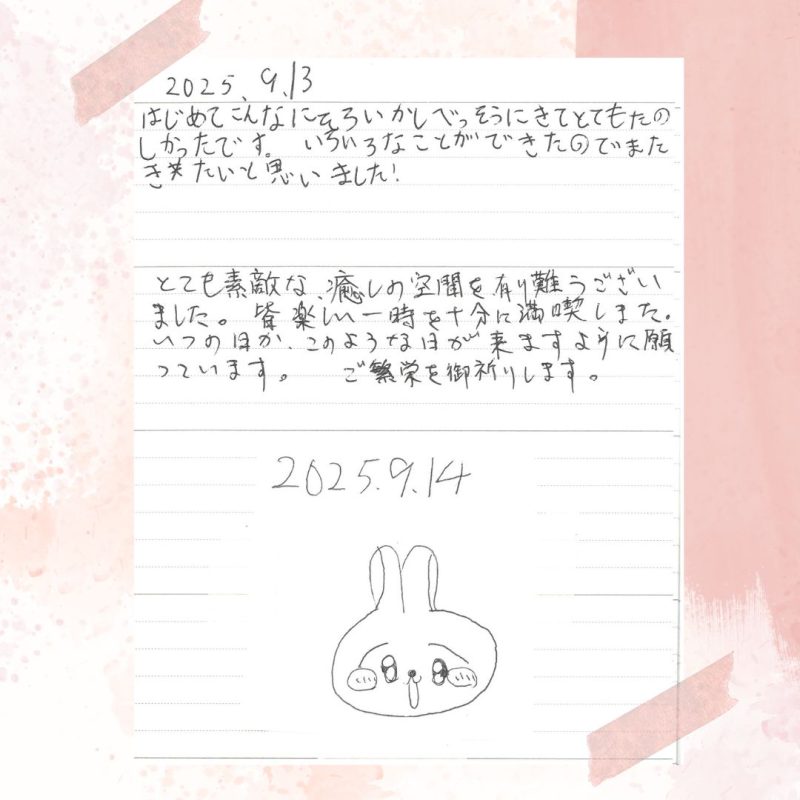 2025.9.13
はじめてこんなにそろいかしべっそうにきてとてもたの
しかったです。 いろいろなことができたのでまた
きたいと思いました!
とても素敵な、癒しの空間を有り難うござい
ました。皆楽しい一時を十分に満喫しました。
いつの日か、このような日が来ますように願
っています。 ご繁栄を御祈りします。
2025.9.14